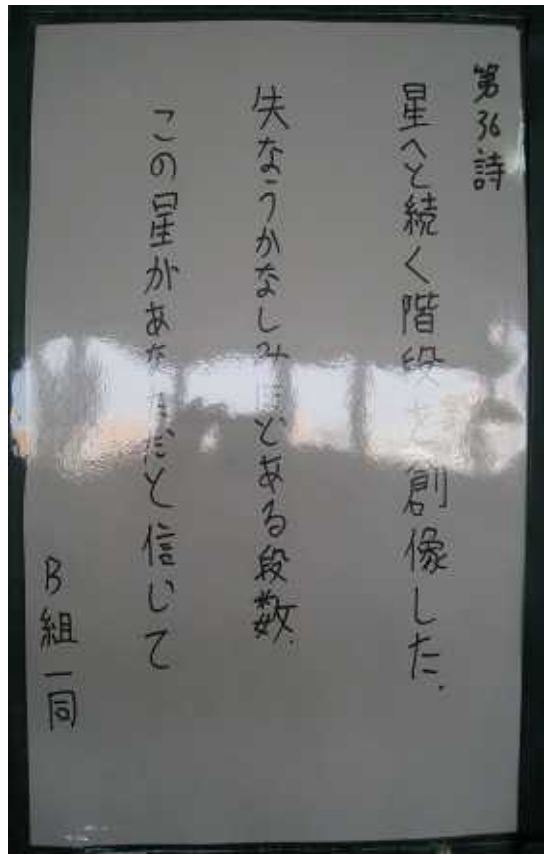 第36詩
星へと続く階段を創像した.
失なうかなしみほどある段数.
この星があなただと信じて
B組一同